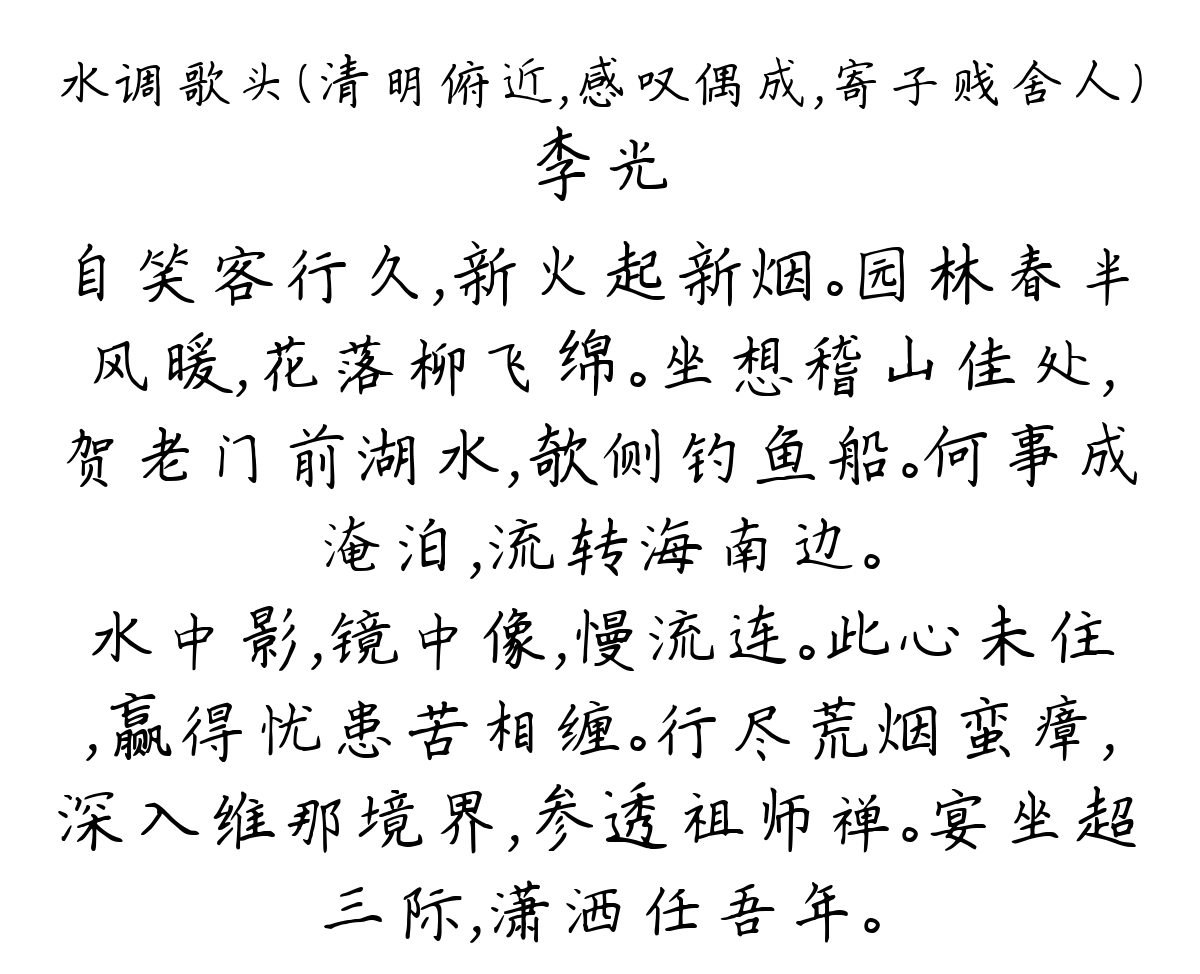 水调歌头(清明俯近,感叹偶成,寄子贱舍人)
李光
自笑客行久,新火起新烟。园林春半
风暖,花落柳飞绵。坐想稽山佳处,
贺老门前湖水,欹侧钓鱼船。何事成
淹泊,流转海南边。
水中影,镜中像,慢流连。此心未住
,赢得忧患苦相缠。行尽荒烟蛮瘴,
深入维那境界,参透祖师禅。宴坐超
三际,潇洒任吾年。